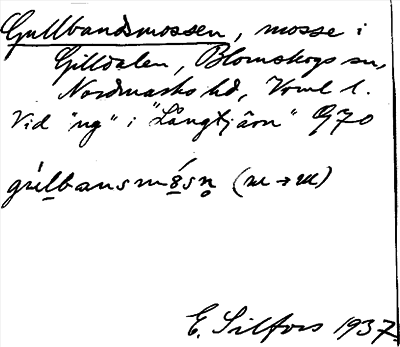 Gullbandsmossen, mosse i
Gilldalen, Blomskogs sn,
Nordmarks hd, Verml l.
Vid "ng" i "Långtjärn" G70
(u → u)
E. Silfors 1937.